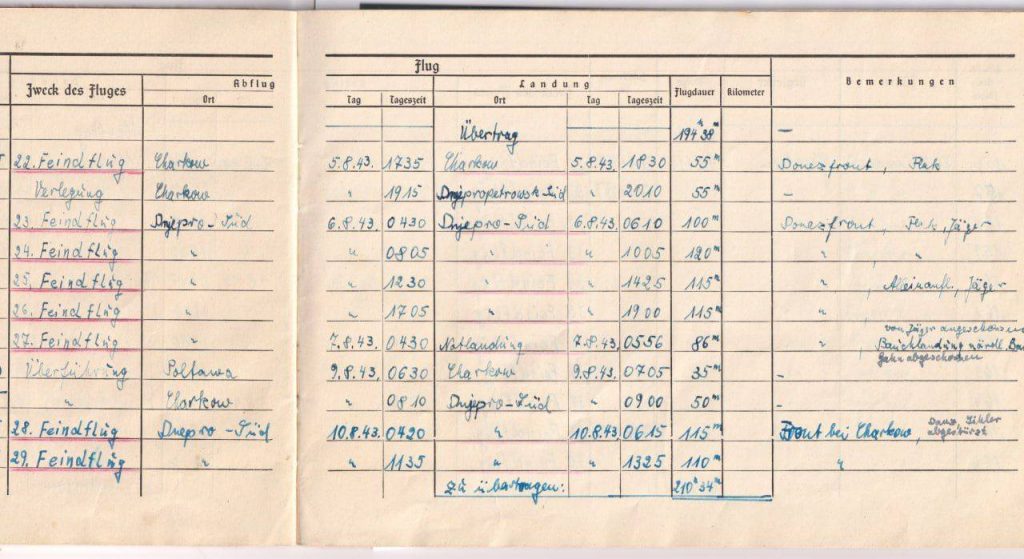 Flug
Zweck des Fluges Abflug Landung Flugdauer Kilometer Bemerkungen
Ort Tag Tageszeit Ort Tag Tageszeit
Übertrag 194h 38m –
22. Feindflug Charkow 5.8.43. 1735 Charkow 5.8.43. 1830 55m Donezfront, Flak
Verlegung Charkow " 1915 Dnjepropetrowsk Süd " 2010 55m –
23. Feindflug Dnjepro-Süd 6.8.43. 0430 Dnjepro-Süd 6.8.43. 0610 100m Donezfront, Flak, Jäger
24. Feindflug " " 0805 " " 1005 120m " , "
25. Feindflug " " 1230 " " 1425 115m " , , Jäger
26. Feindflug " " 1705 " " 1900 115m "
von Jäger angeschossen
27. Feindflug " 7.8.43. 0430 Notlandung 7.8.43. 0556 86m " , Bauchlandung nördl.
abgeschossen
Überführung Poltawa 9.8.43. 0630 Charkow 9.8.43. 0705 35m –
" Charkow " 0810 Dnjepro-Süd " 0900 50m –
28. Feindflug Dnepro-Süd 10.8.43. 0420 " 10.8.43. 0615 115m Front bei Charkow, abgestürzt
29. Feindflug " " 1135 " " 1325 110m "
Zu übertragen: 210h 34m